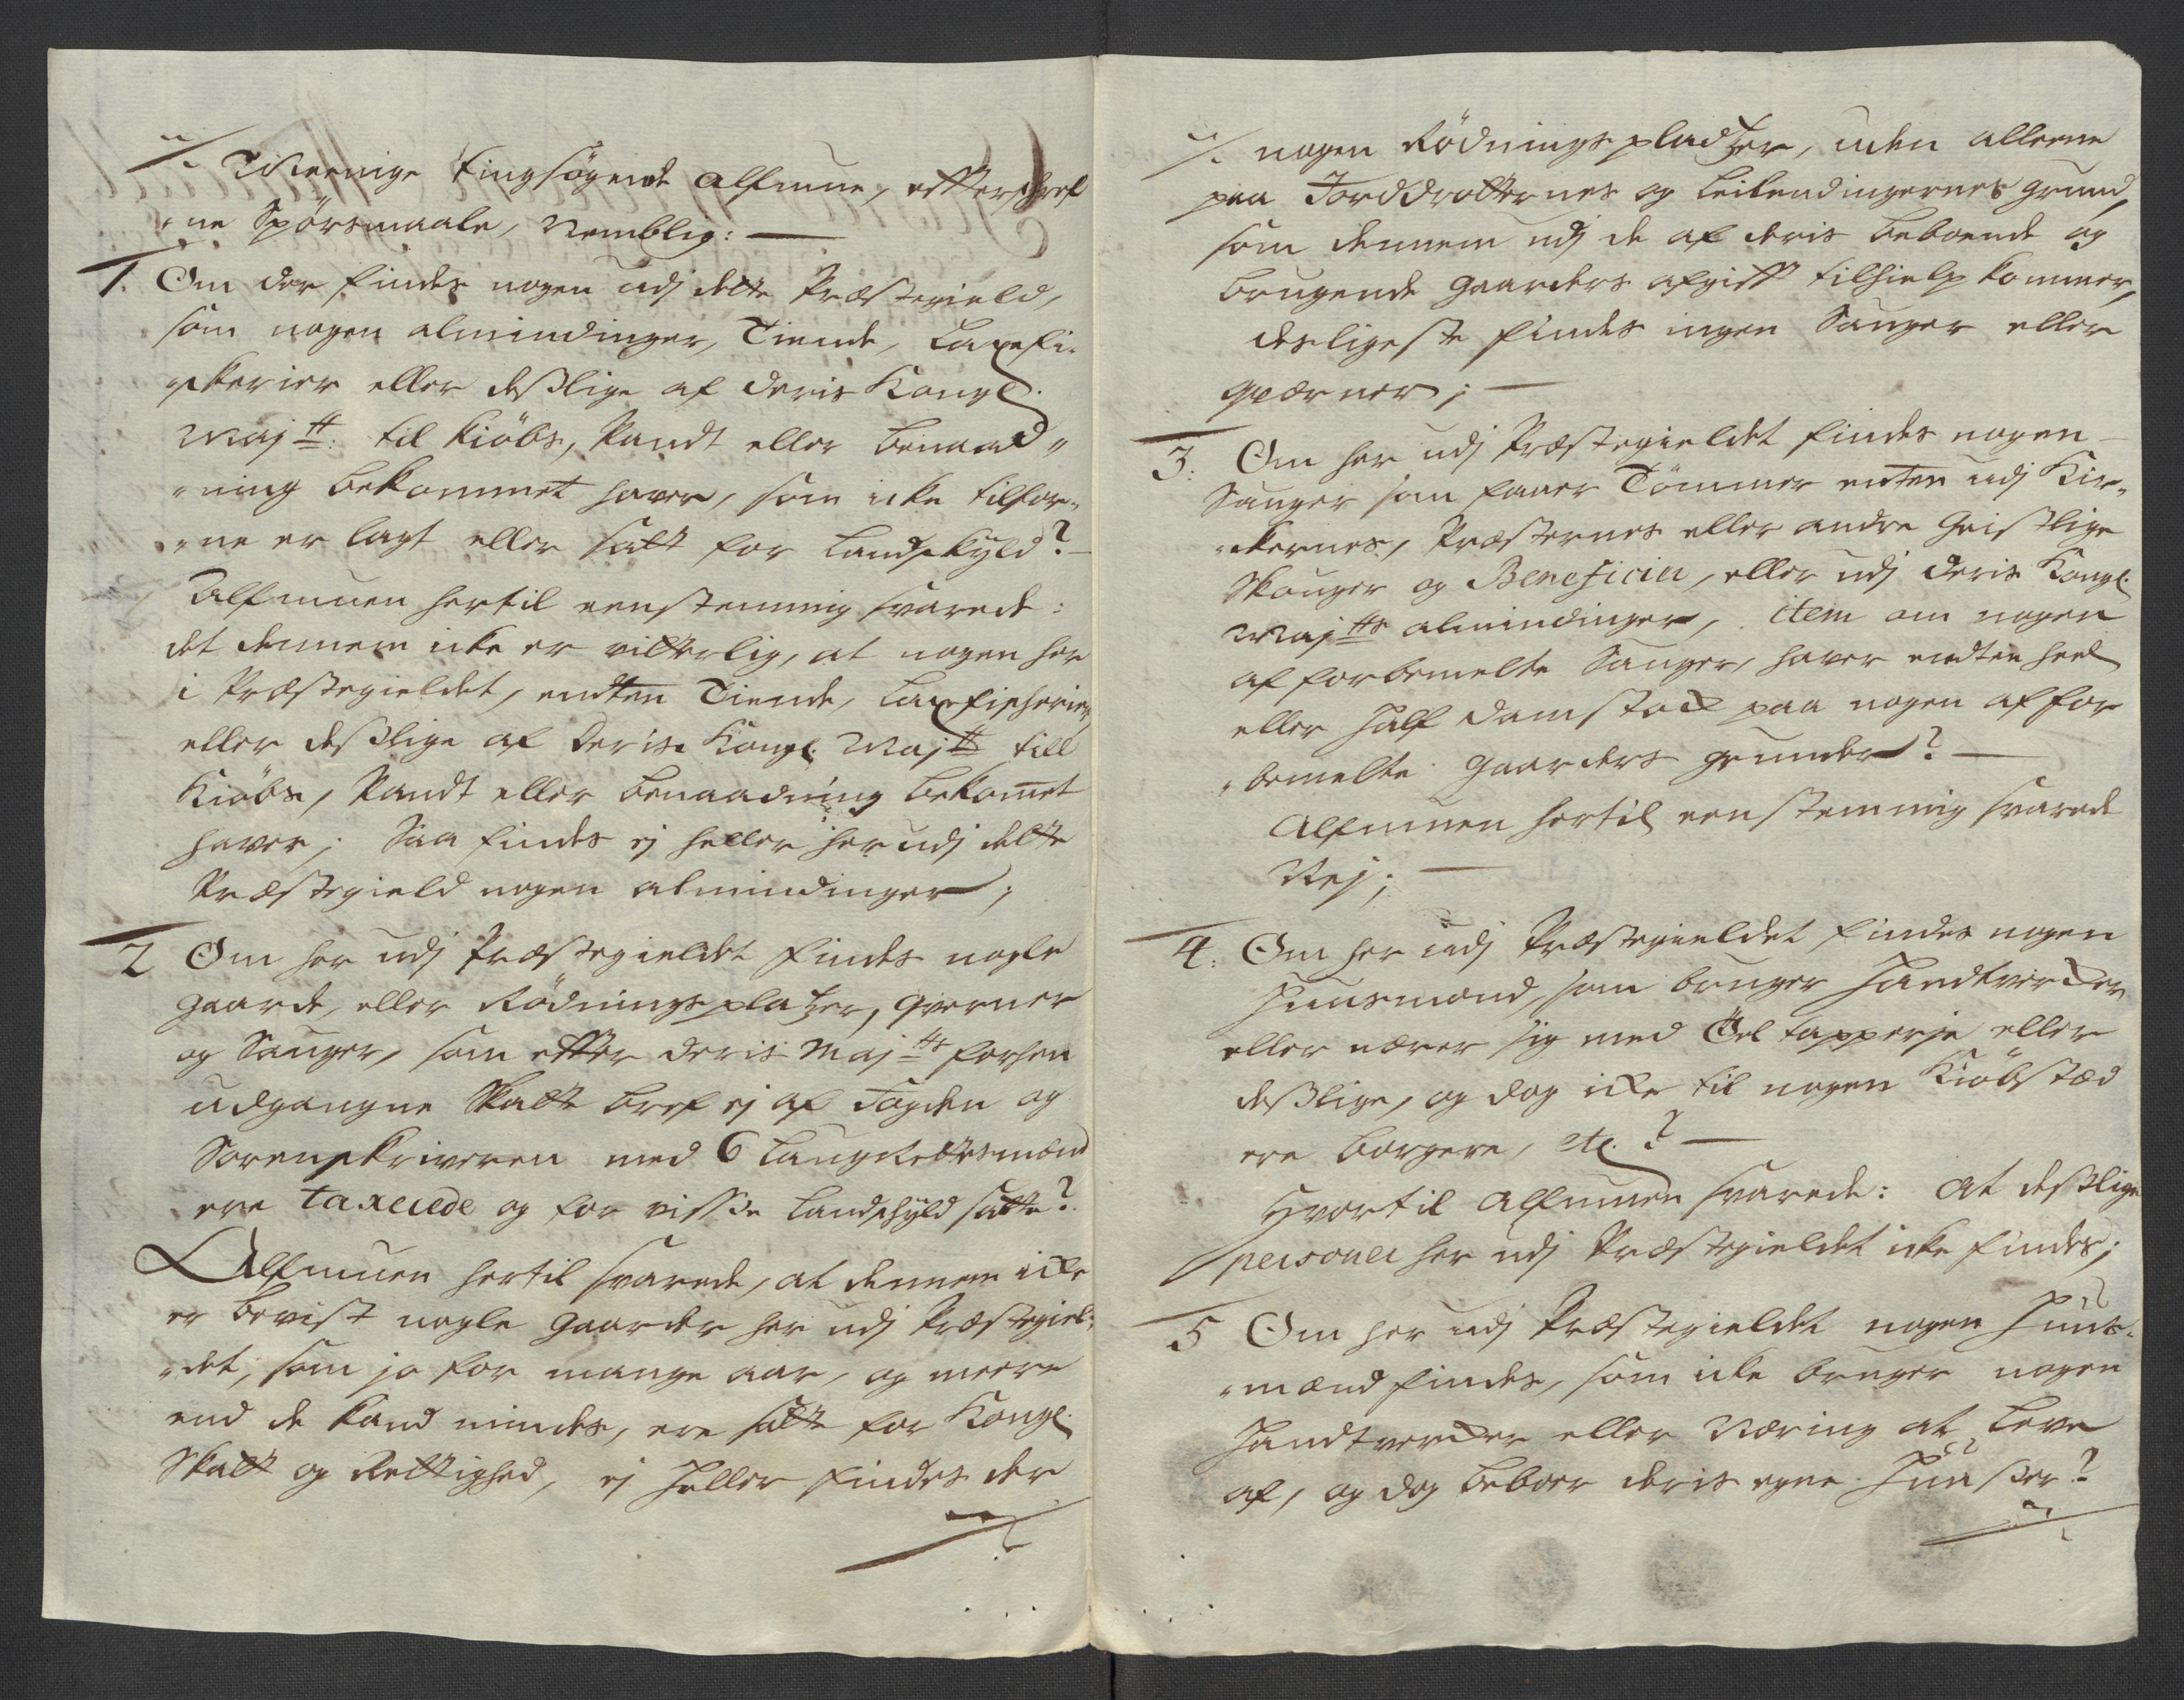 ·/. Meenige tingsøgende Allmue, effterschref
„ne Spørsmaale, Nemblig: —
1. Om der findes nogen udj dette Præstegield,
som nogen almindinger, Tiende, Laxefi„
„skerier eller deßlige af deris Kongl.
Maj:tt til kiøbs, Pandt eller benaad„
„ning bekommet haver, som icke tilfor„
„ne er lagt eller satt for Landskyld? —
Allmuen hertil eenstemmig svarede:
det dennem icke er vitterlig, at nogen her
i Præstegieldet, endten Tiende, Laxefischerier
eller deßlige af Deris Kongl. Maj:tt till
Kiøbs, Pandt eller benaadning bekomet
haver; Saa findes ej heller her udj dette
Præstegield nogen almindinger;
2 Om her udj Præstegieldet findes nogle
gaarde, eller Rødningsplatzer, qverner
og Sauger, som effter Deris Maj:tts forhen
udgangne Skatte bref ej af Fogden og
Sorenskriveren med 6 Laugrettesmænd
ere taxerede og for visse Landschyld satte?
Allmuen hertil svarede, at dennem icke
er bevist nogle gaarder her udj Præstegiel„
„det, som jo for mange aar, og meere
end de kand mindes, ere satt for Kongl.
Skatt og Rettighed, ej heller findes der
·/.
·/. nogen Rødningspladtzer, uden alleene
paa Jorddrotternes og Leilendingernes grund,
som dennem udj de af deris beboende og
brugende gaarders afgifft tilhielp kommer,
desligeste findes ingen Sauger eller
qværner; —
3: Om her udj Præstegieldet findes nogen
Sauger som faaer Tømmer enten udj Kir„
„kernes, Præsternes eller andre Geistlige
Skouger og Beneficier, eller udj Deris Kongl.
Maj:tts almindinger, item om nogen
af forbemelte Sauger, haver endten heel
eller half damstock paa nogen af for
„bemelte gaarders grunder? —
Allmuen hertil eenstemmig svarede
Nej; —
4: Om her udj Præstegieldet findes nogen
Huusmænd, som bruger Handtvercker
eller nærer sig med Øel tapperje eller
deßlige, og dog icke til nogen Kiøbstæd
ere borgere, etc.? —
Hvortil Allmuen svarede: At deßlige
personer her udj Præstegieldet icke findes;
5 Om her udj Præstegieldet nogen Huus„
„mænd findes, som icke bruger nogen
Handtvercker eller Næring at Leve
af, og dog beboer deris egne Huußer?
·/.